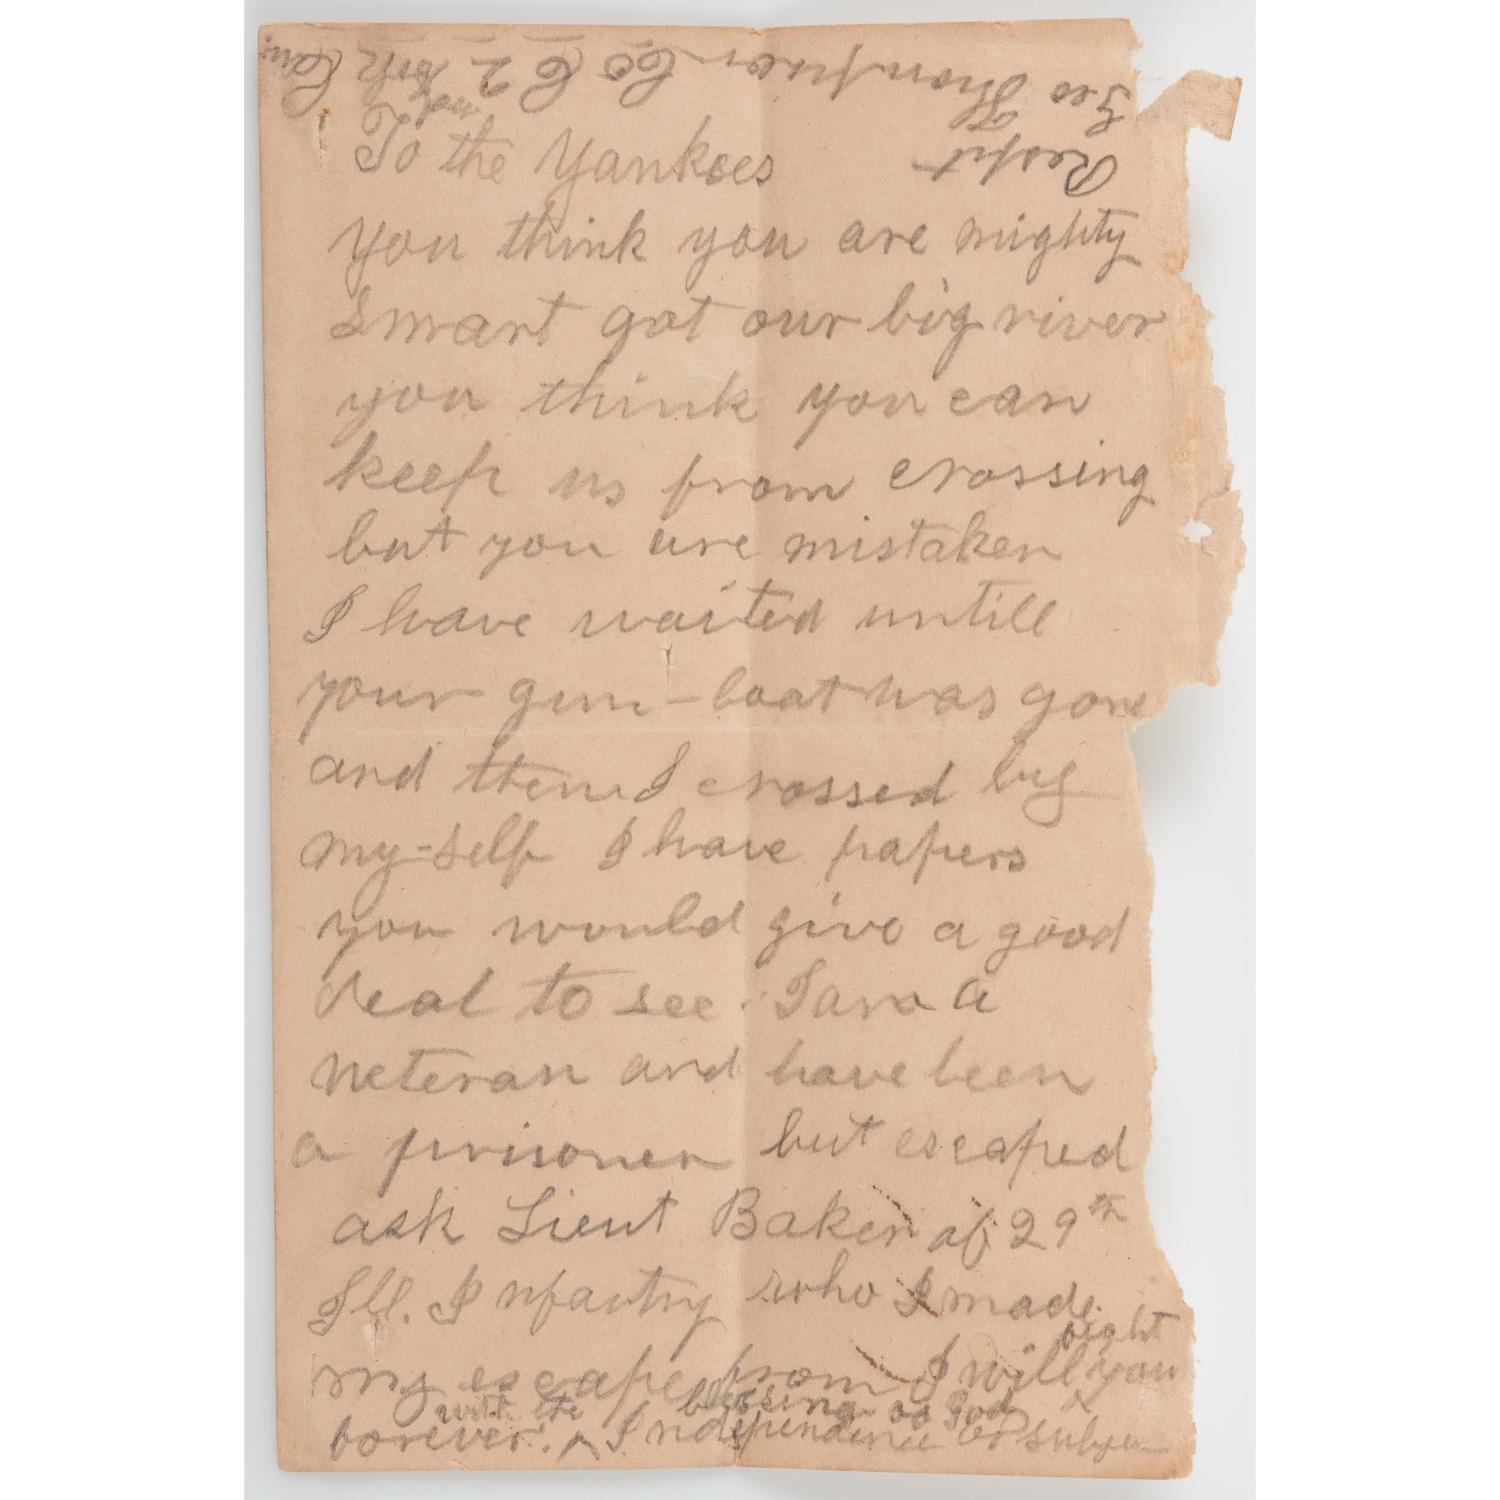 To the Yankees
you think you are mighty
smart got our big river
you think you can
keep us from crossing
but you are mistaken
I have waited untill
your gun-boat was gone
and then I crossed big
my-self I have papers
you would give a good
deal to see. I am a
veteran and have been
a prisoner but escaped
ask Lieut Baker of 29th
Ill. Infantry who I made
my escape from I will fight you
forever. with the blessing of God Independence or subju
Respt
Geo Thompson Co C 2